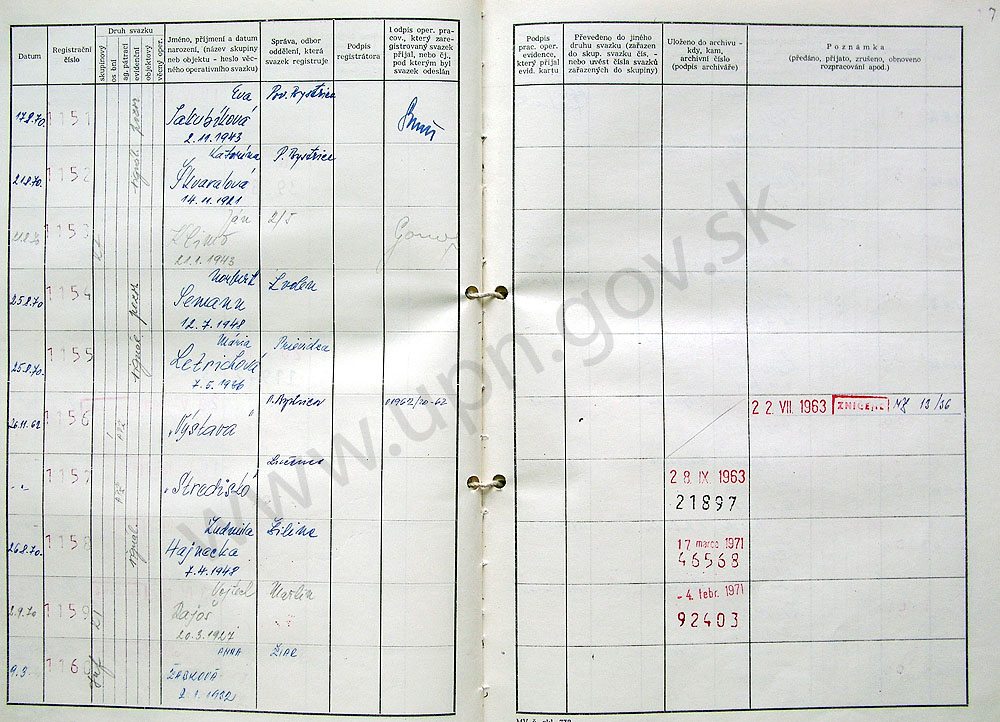 Datum
Registrační číslo
Druh svazku
skupinový
os bní
ag. pátrací
evidenční
objektový
věcný oper.
Jméno, příjmení a datum
narození, (název skupiny
neb objektu - heslo věc-
ného operativního svazku)
Správa, odbor
oddělení, která
svazek registruje
Podpis
registrátora
I odpis oper. pra-
cov., který zare-
gistrovaný svazek
přijal, nebo čj.,
pod kterým byl
svazek odeslán
Podpis
prac. oper.
evidence,
který přijal
evid. kartu
Převedeno do jiného
druhu svazku (zařazen
do skup. svazku čís. -
nebo uvést čísla svazků
zařazených do skupiny)
Uloženo do archivu -
kdy, kam,
archivní číslo
(podpis archiváře)
Poznámka
(předáno, přijato, zrušeno, obnoveno
rozpracování apod.)
7
17.8.70. 1151 Eva Pov. Bystrica
Jakubíková
2.11.1943
21.8.70. 1152 signál Katarína P. Bystrica
Škvaralová
14.11.1921
1153 Ján 2/5
21.1.1943
25.8.70 1154 Norbert Zvolen
Semann
12.7.1948
25.8.70. 1155 signál Mária Prievidza
Letrichová
7.5.1936
26.11.62 1156 P. Bystrica
„Výstava"
22. VII. 1963 ZNIČENÉ 13/36
-"- 1157 Lučenec
„Stredisko"
28. IX. 1963
21897
26.8.70. 1158 signál Ľudmila Žilina
Hajnacka
7.4.1948
17. marec 1971
46568
2.9.70 1159 Vojtech Martin
Bajos
20.3.1927
-4. febr. 1971
92403
9.9. 1160 ANNA ŽIAR
ŽABKOVÁ
2.1.1932
www.upn.gov.sk